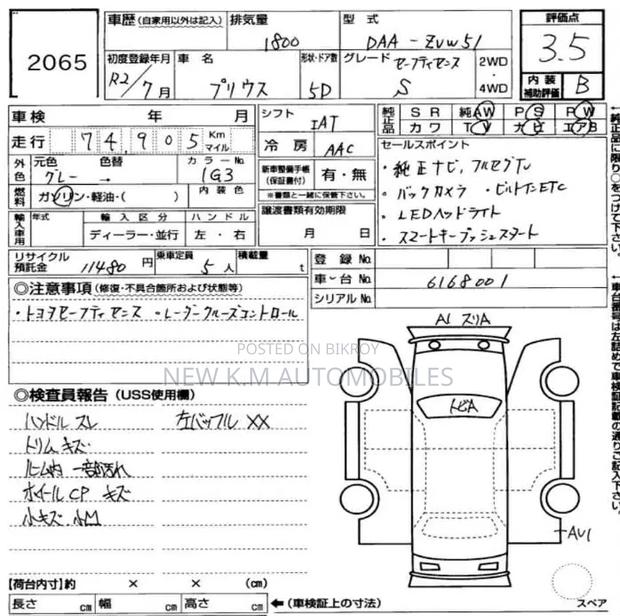 2065
車歴 (自家用以外は記入) 排気量 型式 評価点
1800 DAA-ZVW51 3.5
初度登録年月 車名 形状・ドア数 グレード 2WD・4WD 内装補助評価
R2/7月 プリウス 5D セーフティセンス S B
車検 年 月 シフト IAT 純正品 SR 純AW PS PW
カワ TV ナビ エアB
走行 74,905 Km マイル 冷房 AAC セールスポイント
外色 元色 色替 カラーNo.
グレー → 1G3
新車整備手帳(保証書付) 有・無
※書類と一緒に保管下さい。
・純正ナビ,フルセグTV
・バックカメラ ・ビルトインETC
・LEDヘッドライト
・スマートキープッシュスタート
燃料 ガソリン・軽油・( ) 内装色
譲渡書類有効期限
月 日
輸入車用 年式 輸入区分 ハンドル
ディーラー・並行 左・右
リサイクル預託金 11480円 乗車定員 5人 積載量 t
登録No.
車台No. 6168001
シリアルNo.
◎注意事項 (修復・不具合箇所および状態等)
・トヨタセーフティセンス ・レーダークルーズコントロール
POSTED ON BIKROY
NEW K.M AUTOMOBILES
◎検査員報告 (USS使用欄)
ハンドル スレ 左バッフル XX
トリム キズ
ルーム内 一部汚れ
ホイールCP キズ
小キズ 小M
A1 スリA
トビA
AU1
スペア
【荷台内寸】約 × × (cm)
長さ cm 幅 cm 高さ cm ←(車検証上の寸法)
↑純正品に限り○をつけて下さい。
↑車台番号は左詰めで車検証記載の通りご記入下さい。